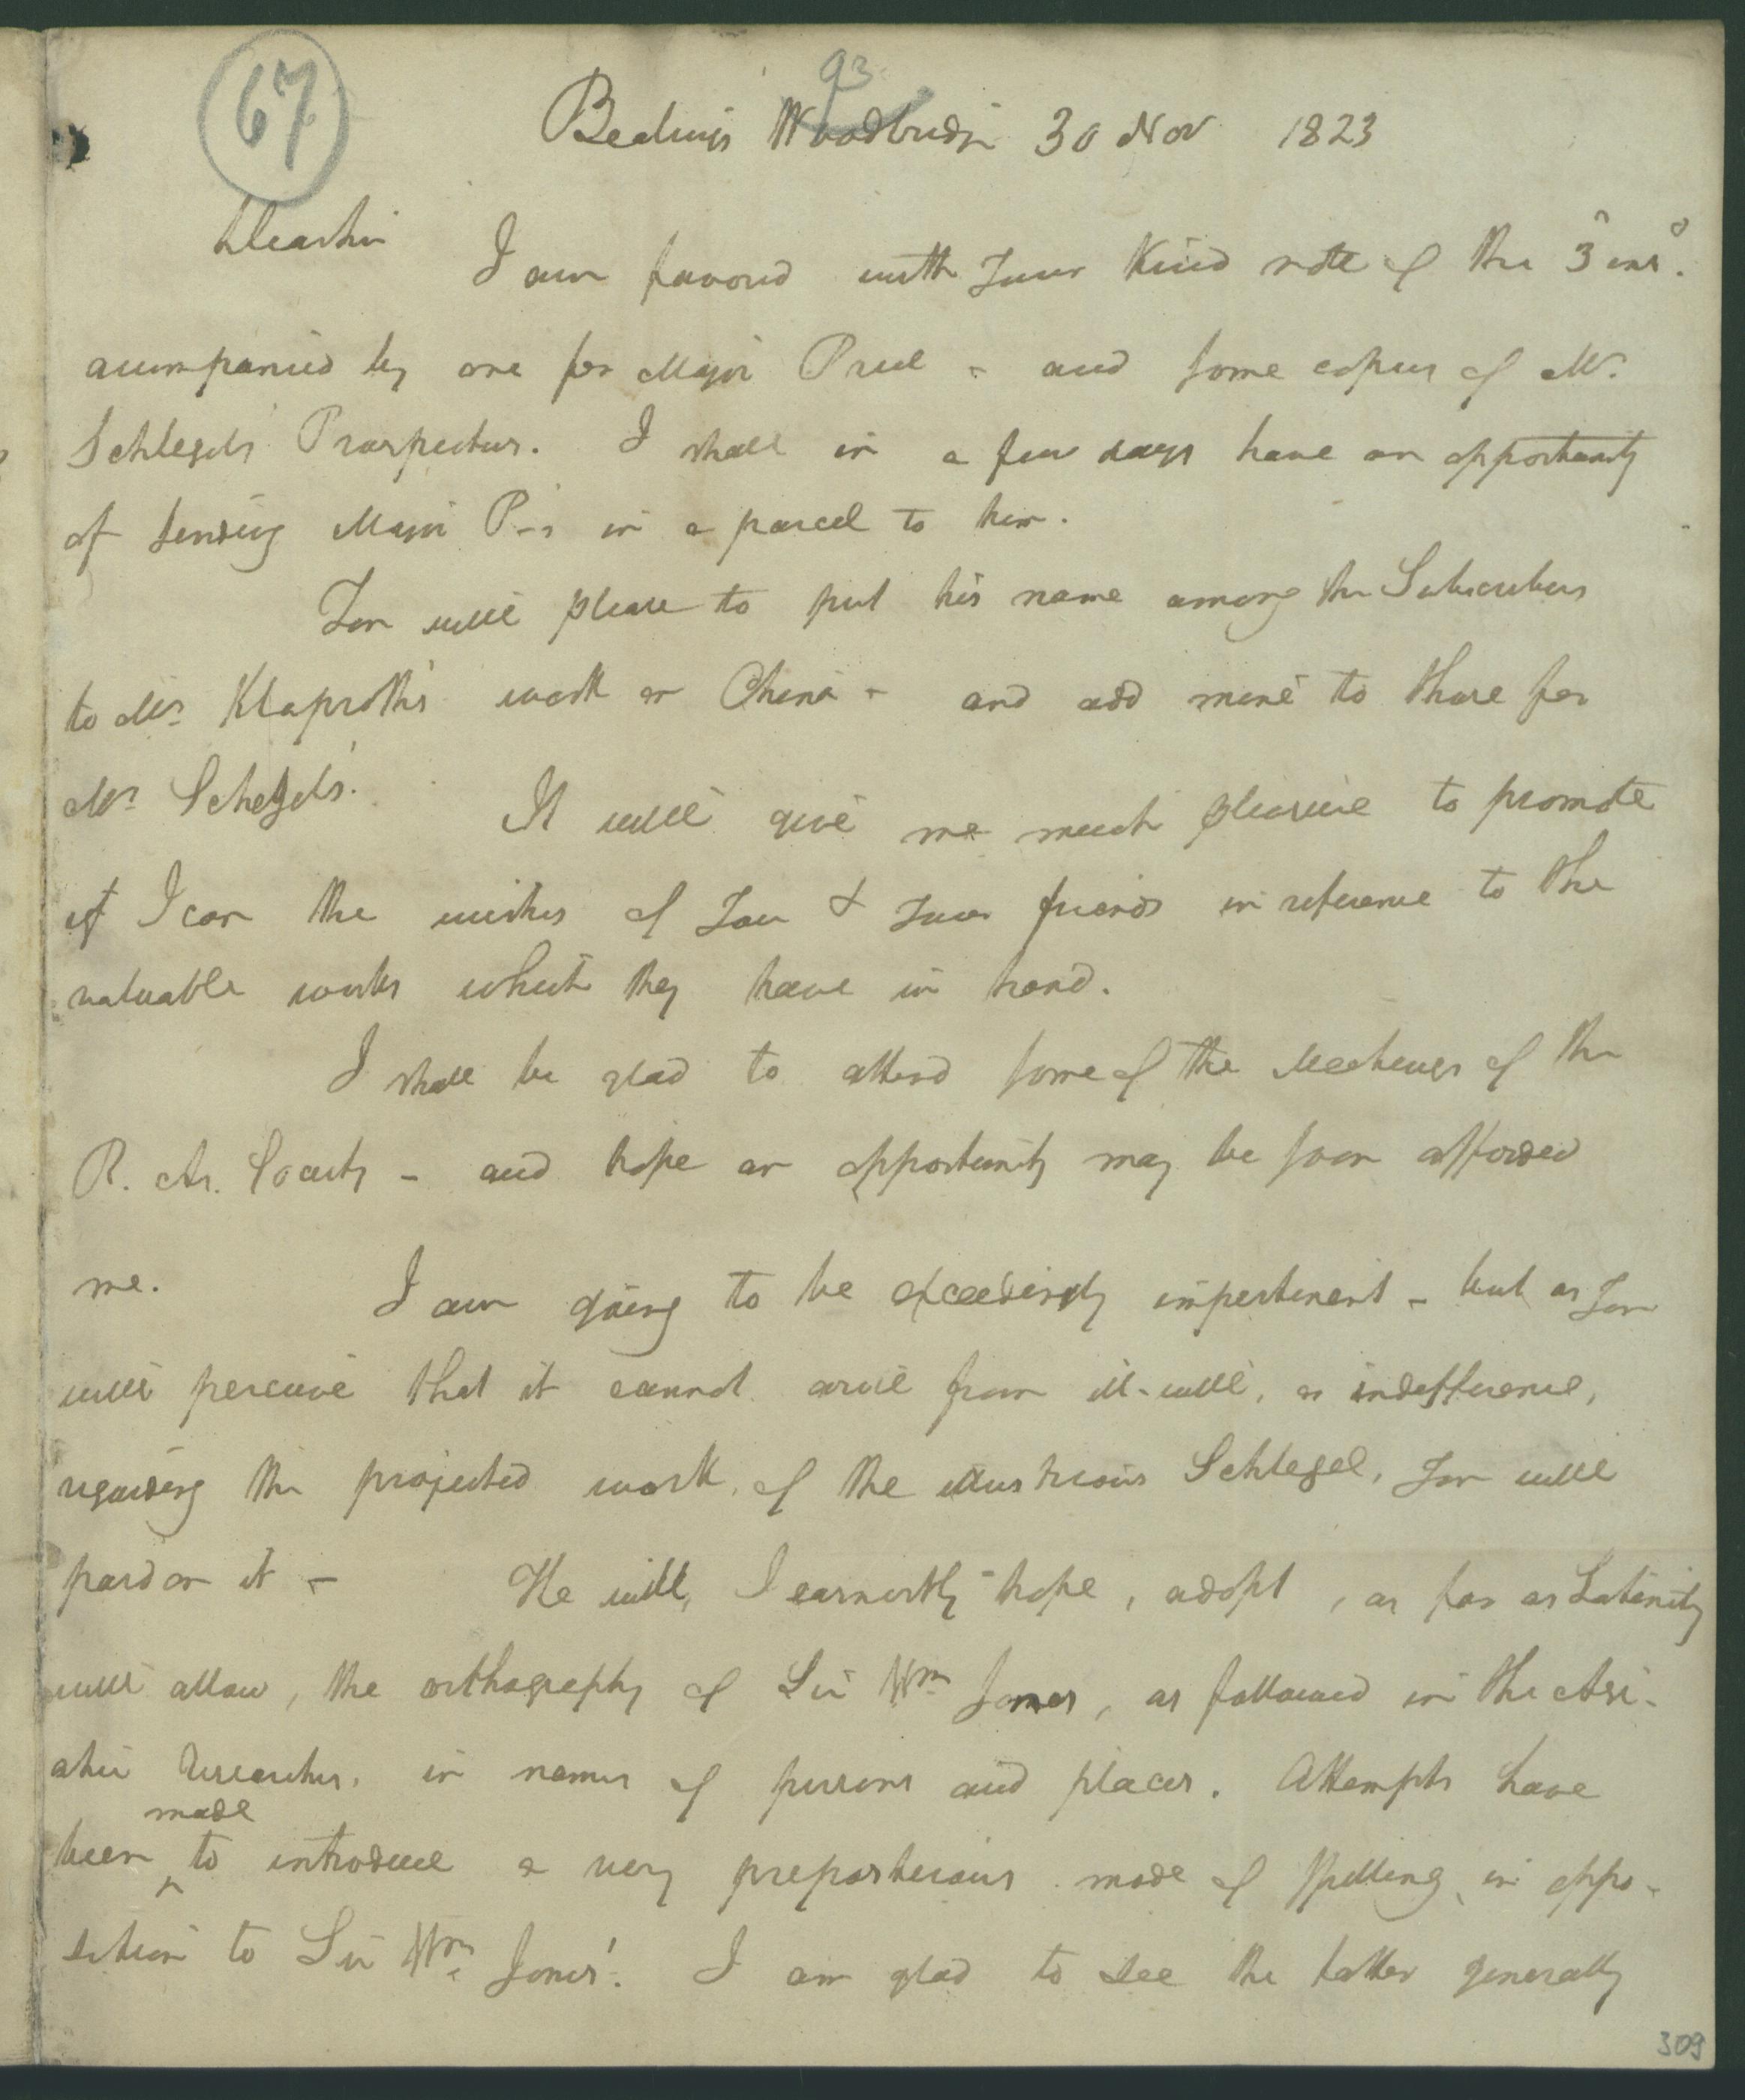 67
93
Bealings Woodbridge 30 Nov 1823
Dear Sir
I am favored with Your Kind note of the 3 ins.
accompanied by one for Major Price - and some copies of Mr.
Schlegels Prospectus. I shall in a few days have an opportunity
of sending Major P-s in a parcel to him.
You will please to put his name among the Subscribers
to Mr. Klaproth's work on China - and add mine to those for
Mr. Schegels'.
It will give me much pleasure to promote
if I can the wishes of You & Your friends in reference to the
valuable works which they have in hand.
I shall be glad to attend some of the Meetings of the
R. As. Society - and hope an opportunity may be soon afforded
me.
I am going to be exceedingly impertinent - but as You
will perceive that it cannot arise from ill-will, or indifference,
regarding the projected work, of the illustrious Schlegel, You will
pardon it -
He will, I earnestly hope, adopt, as far as Latinity
will allow, the orthography of Sir Wm Jones, as followed in the Asi-
atic Researches, in names of persons and places. Attempts have
made
been to introduce a very preposterous mode of spelling, in oppo-
sition to Sir Wm. Jones'. I am glad to see the latter generally
309